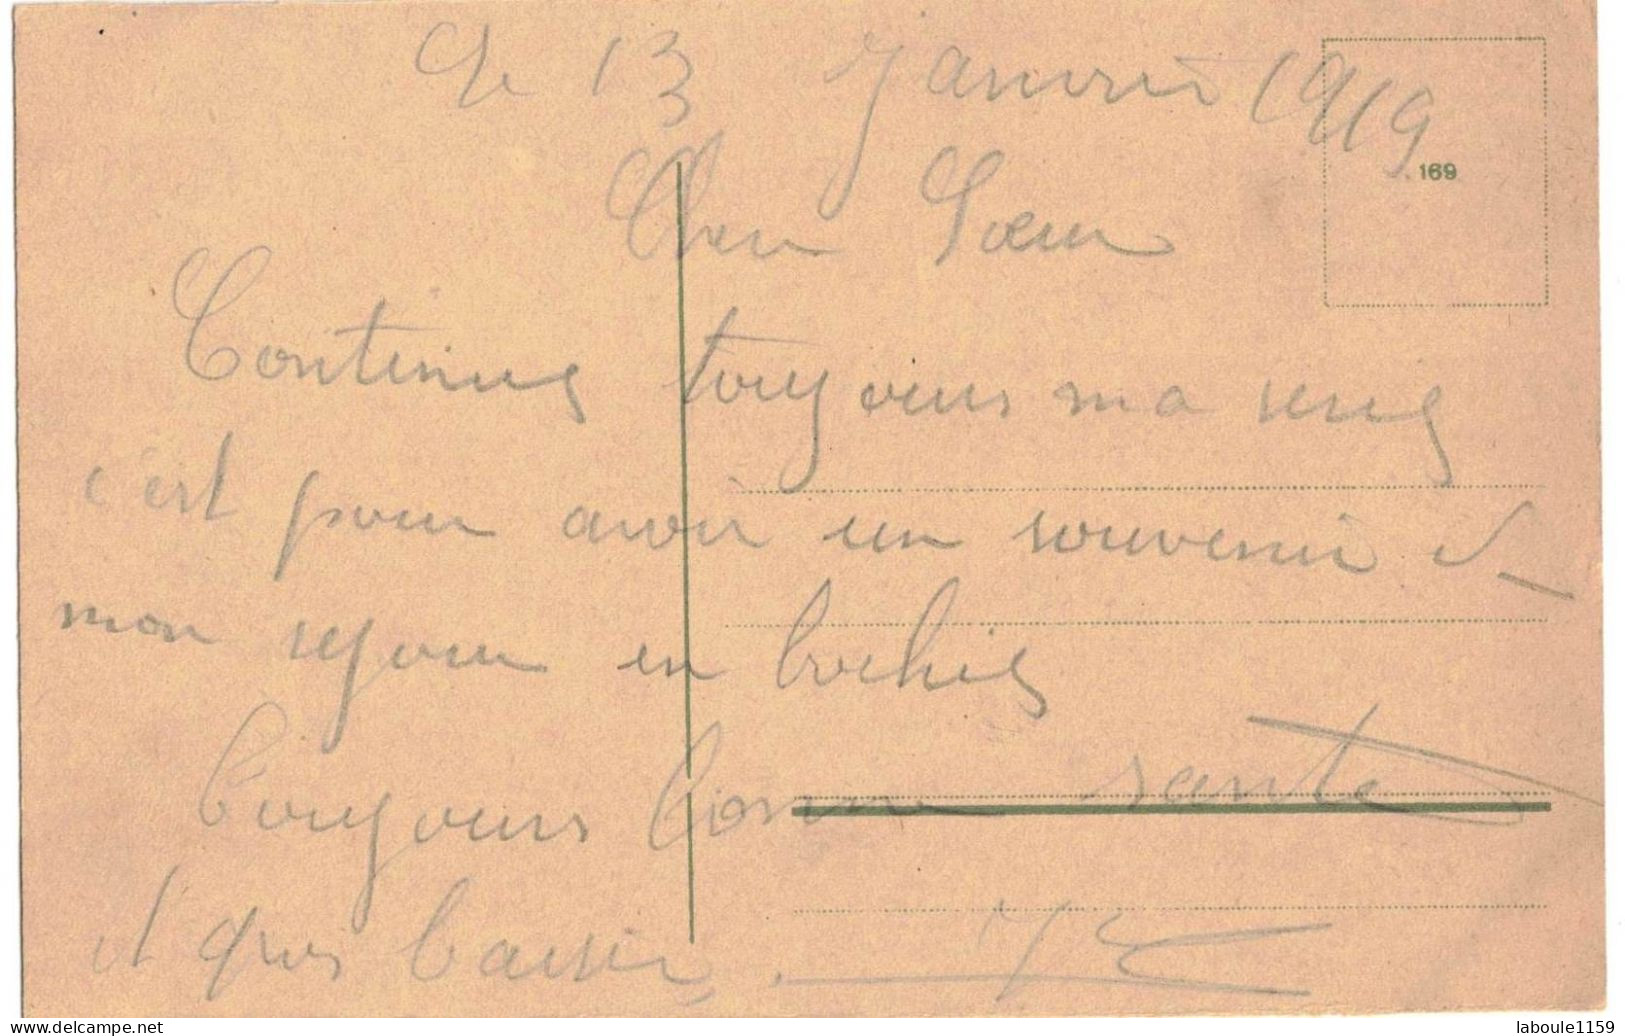 Le 13 Janvier 1919
169
Cher Sœur
Continue toujours ma
c'est pour avoir un souvenir d
mon sejour en bochie
Toujours bonne sante
et gros baiser
delcampe.net
laboule1159